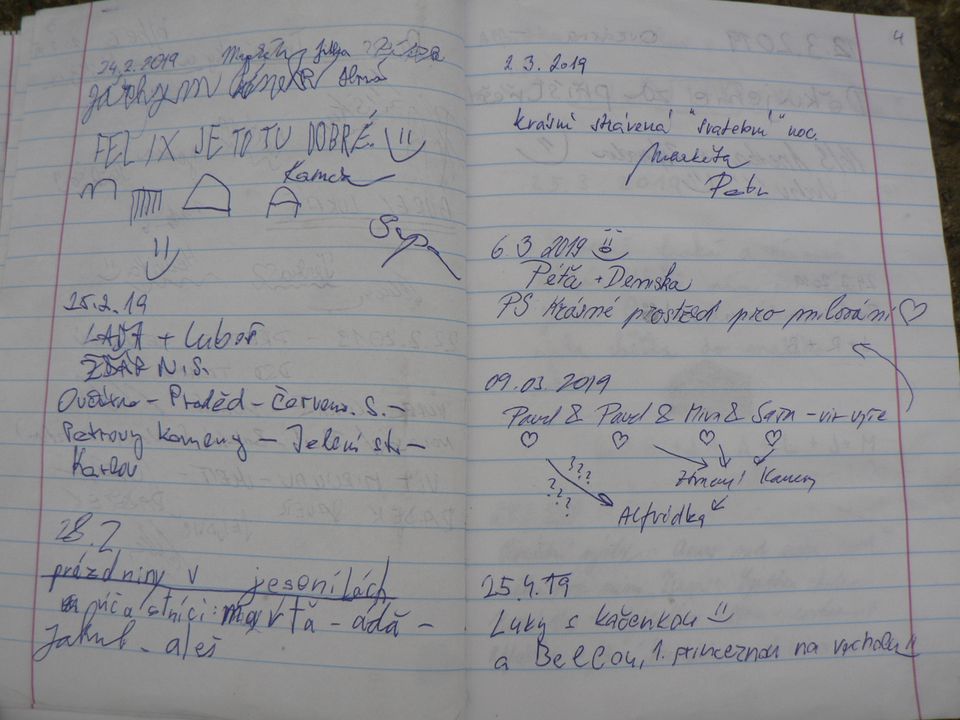 24.2.2019 Markéta
Jáchym
FELIX JE TO TU DOBRÉ.
Kamča
25.2.19
LAĎA + Luboš
ŽĎÁR N.S.
Ovčárna - Praděd - Červená. S. -
Petrovy kameny - Jelení st. -
Karlov
28.2
prázdniny v jesoníkách
účastníci: marťa - áďa -
Jakub - aleš
4
2.3.2019
krásně strávená "svatební" noc.
Markéta
Petr
6.3 2019
Péťa + Deniska
PS Krásné prostředí pro milování ♡
09.03.2019
Pavel & Pavel & Mirva & Sára - viz výše
♡ ♡ ♡ ♡
???
???
Kameny
Alfrédka
25.4.19
Luky s Kačenkou
a Bellou, 1. princeznou na vrcholu